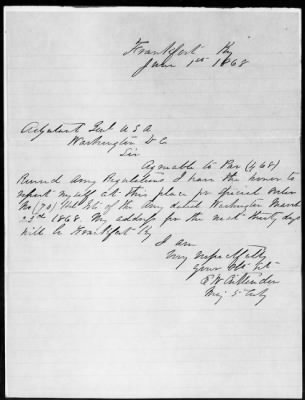 Frankfort Ky
June 1st 1868
Adjutant Genl U S A
Washington D C
Sir
Agreeable to Par (468)
Revised Army Regulations I have the honor to
report myself at this place pr Special Order
No (70) Hd Qts of the Army dated Washington March
23rd 1868. My address for the next thirty days
will be Frankfort Ky
I am
Very respectfully
Your Obt Svt
Maj 5 Cavly